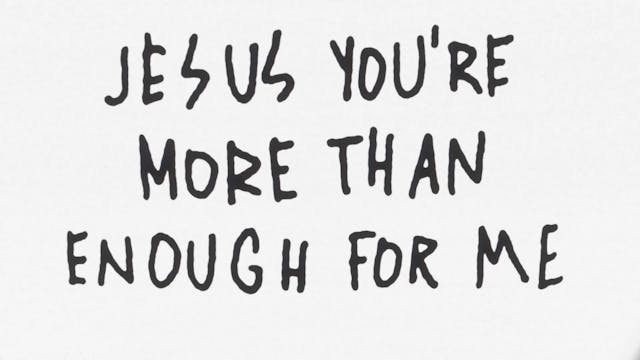 JESUS YOU'RE
MORE THAN
ENOUGH FOR ME